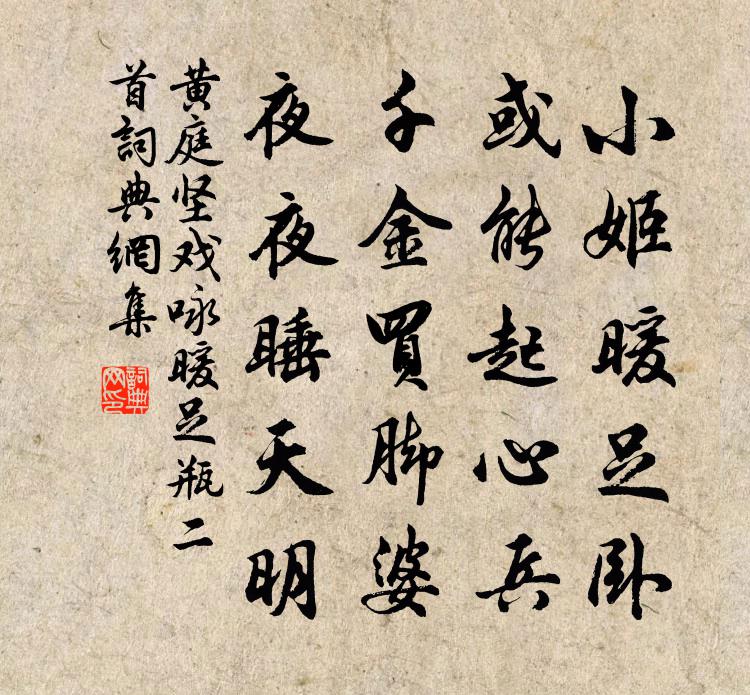 小姬暖足卧
或能起心兵
千金買脚婆
夜夜睡天明
黄庭坚戏咏暖足瓶二
首詞典網集
詞典
网印